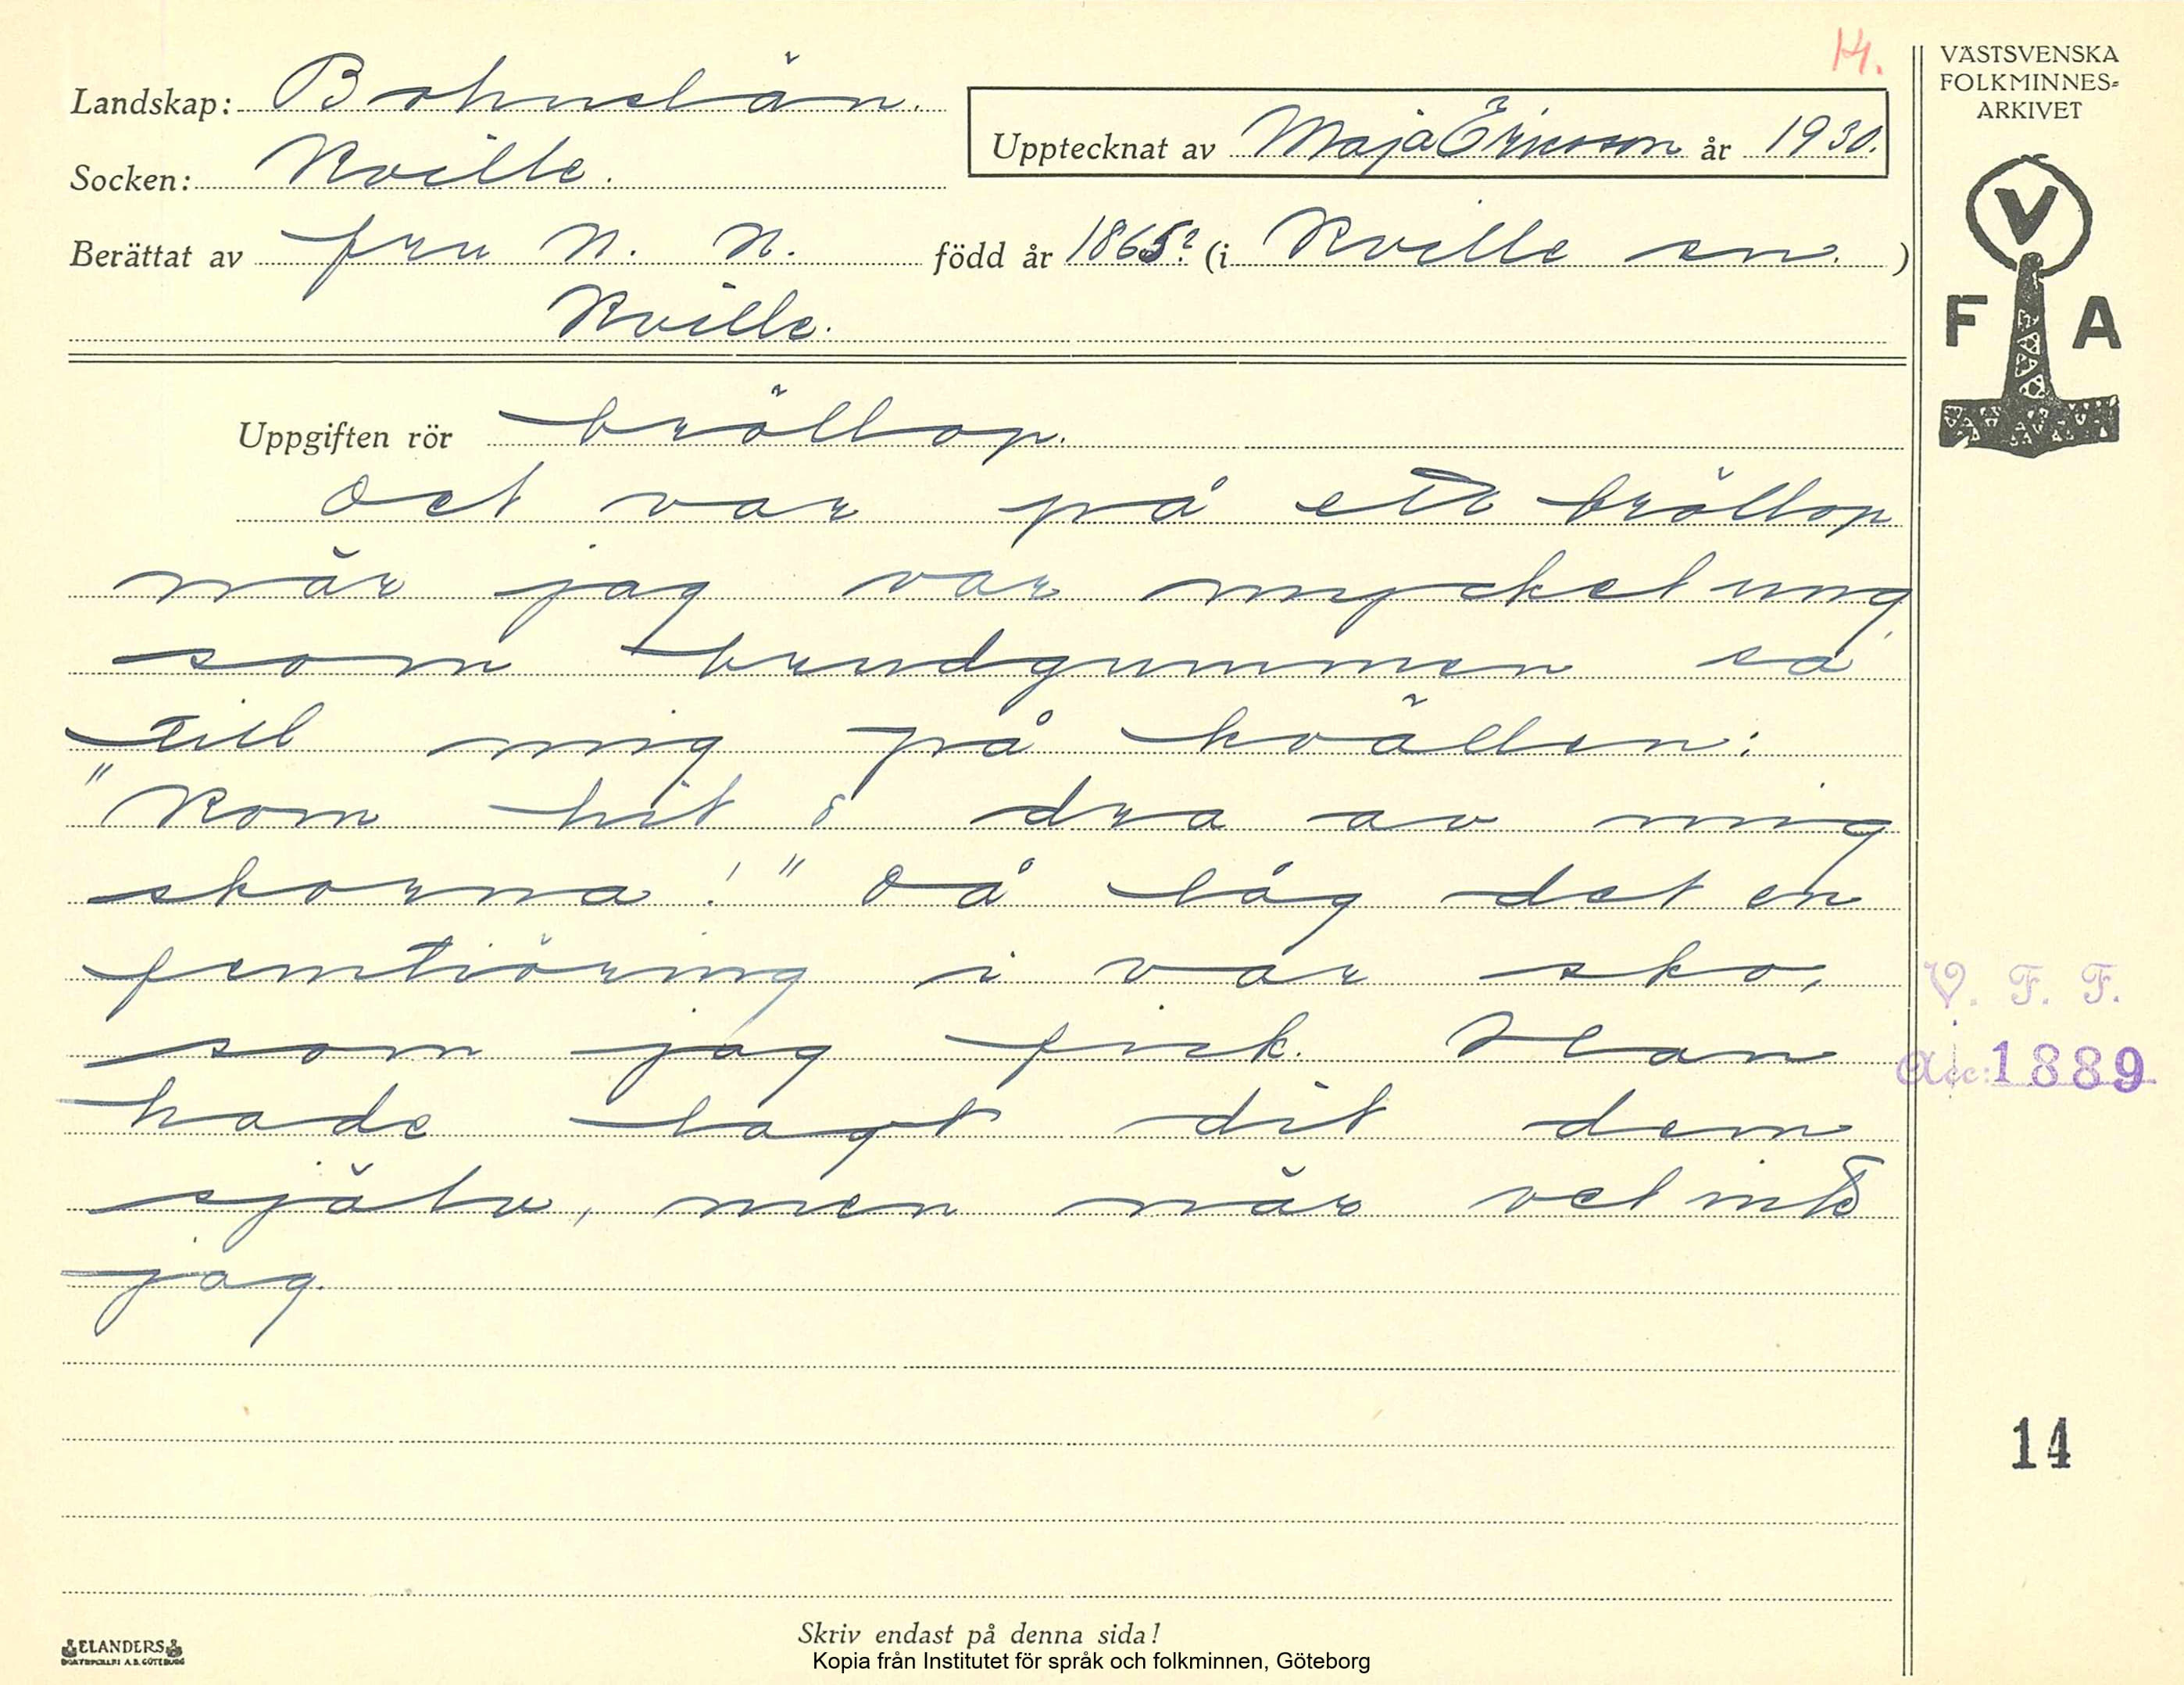 14.
VÄSTSVENSKA
FOLKMINNES=
ARKIVET
Landskap: Bohuslän.
Upptecknat av Maja Ericsson år 1930.
Socken: Kville.
Berättat av fru N. N. född år 1865? (i Kville sn. )
Kville.
V
F A
Uppgiften rör bröllop.
Det var på ett bröllop
när jag var mycket ung,
som brudgummen sa
till mig på kvällen:
"Kom hit å dra av mig
skorna!" Då låg det en
femtiöring i var sko,
som jag fick. Han
hade lagt dit dem
själv, men när vet inte
jag.
V. F. F.
Acc: 1889
14
Skriv endast på denna sida!
ELANDERS
BOKTRYCKERI A.B. GÖTEBORG
Kopia från Institutet för språk och folkminnen, Göteborg